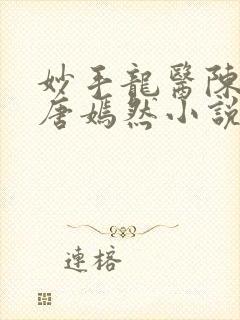 妙手龍醫陳
唐嫣然小說
連榕